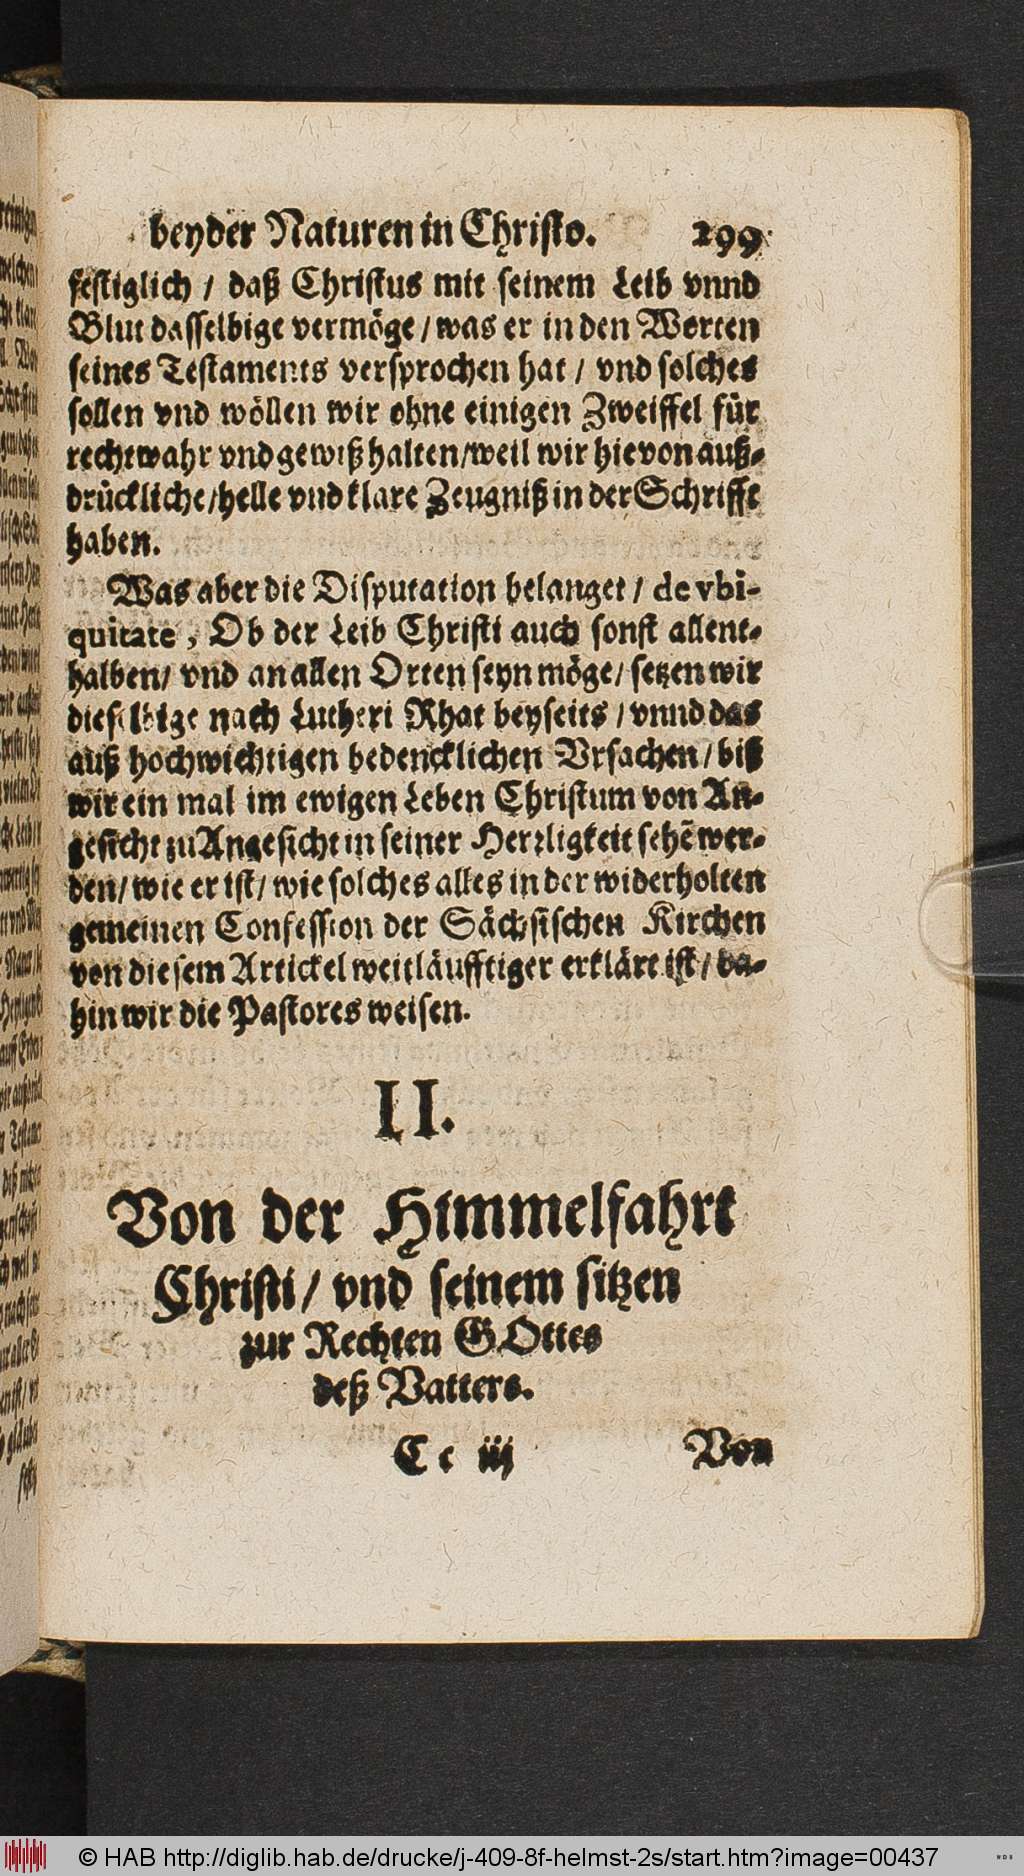 beyder Naturen in Christo. 299
festiglich / daß Christus mit seinem Leib vnnd
Blut dasselbige vermöge / was er in den Worten
seines Testaments versprochen hat / vnd solches
sollen vnd wöllen wir ohne einigen Zweiffel für
recht wahr vnd gewiß halten / weil wir hievon auß-
drückliche / helle vnd klare Zeugniß in der Schrifft
haben.
Was aber die Disputation belanget / de vbi-
quitate, Ob der Leib Christi auch sonst allent-
halben / vnd an allen Orten seyn möge / setzen wir
dieselbige nach Lutheri Rhat beyseits / vnnd das
auß hochwichtigen bedencklichen Vrsachen / biß
wir ein mal im ewigen Leben Christum von An-
gesicht zu Angesicht in seiner Herrligkeit sehẽ wer-
den / wie er ist / wie solches alles in der widerholten
gemeinen Confession der Sächsischen Kirchen
von diesem Artickel weitläufftiger erkläret ist / da-
hin wir die Pastores weisen.
II.
Von der Himmelfahrt
Christi / vnd seinem sitzen
zur Rechten GOttes
deß Vatters.
C c iij Von
© HAB http://diglib.hab.de/drucke/j-409-8f-helmst-2s/start.htm?image=00437